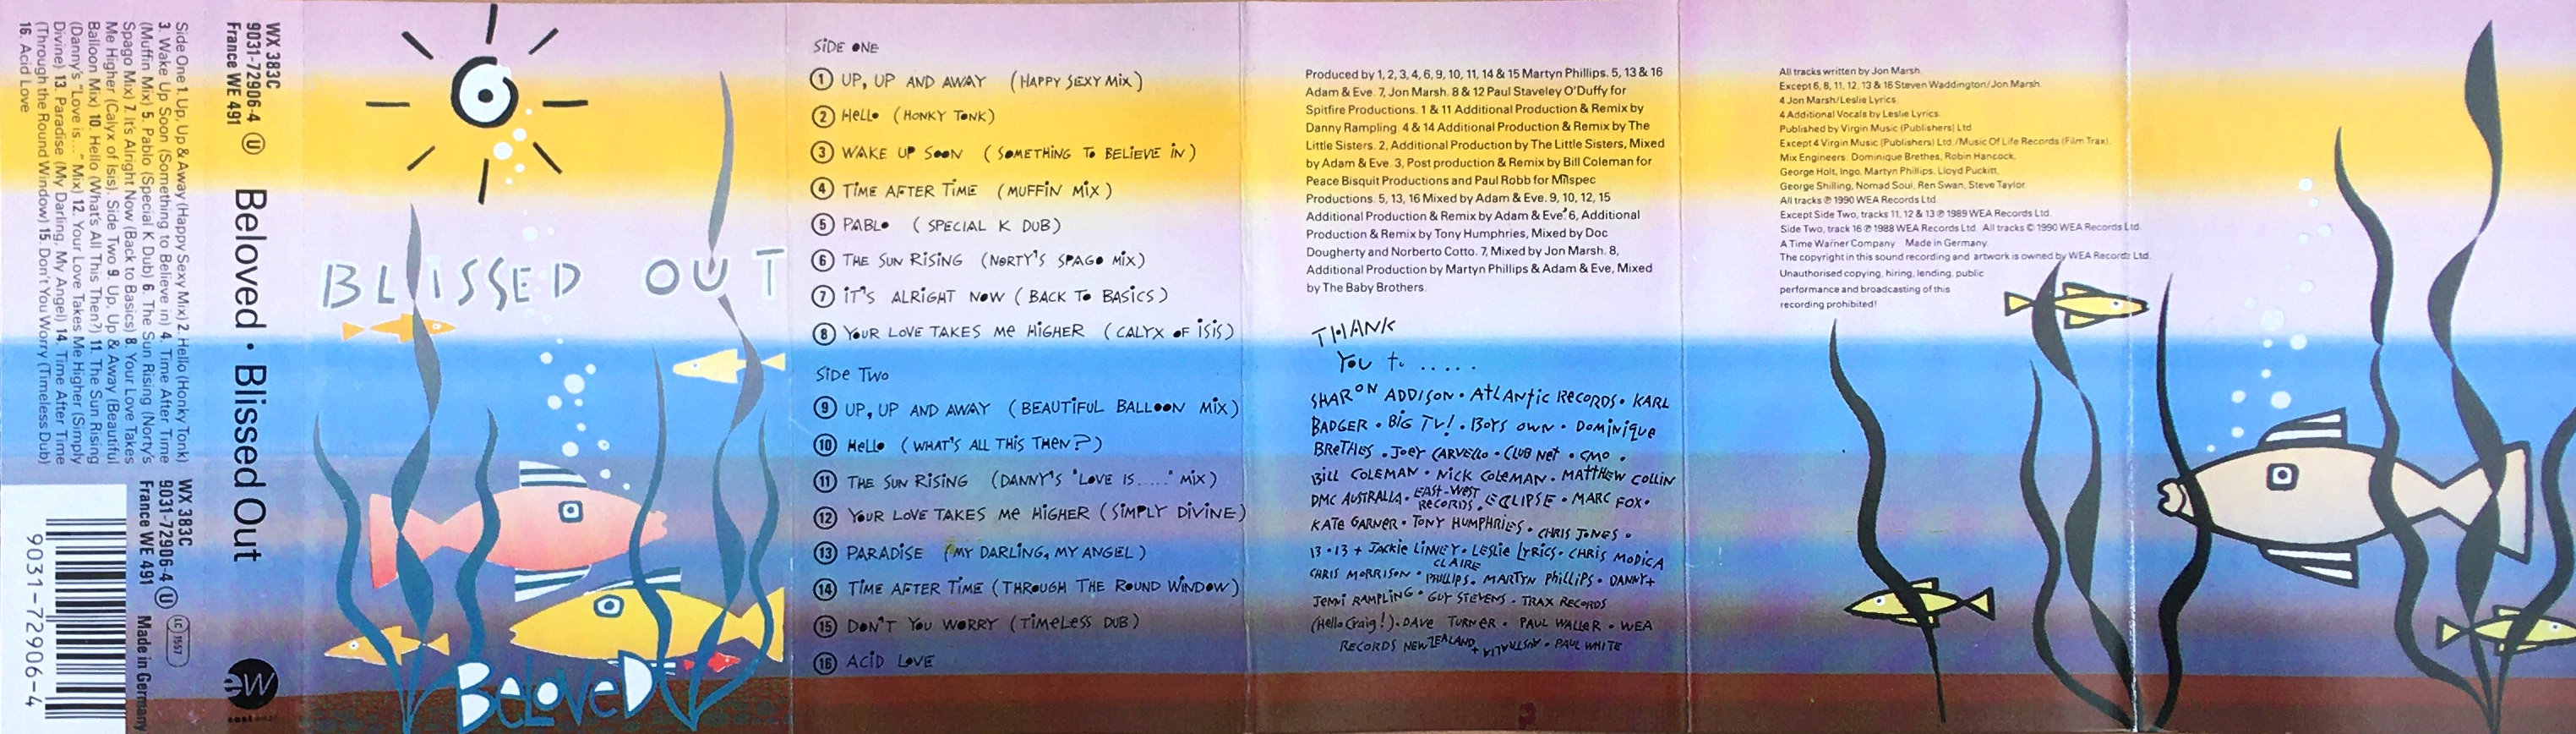 Side One 1. Up, Up & Away (Happy Sexy Mix) 2. Hello (Honky Tonk)
3. Wake Up Soon (Something to Believe in) 4. Time After Time
(Muffin Mix) 5. Pablo (Special K Dub) 6. The Sun Rising (Norty's
Spago Mix) 7. It's Alright Now (Back to Basics) 8. Your Love Takes
Me Higher (Calyx of Isis). Side Two 9. Up, Up & Away (Beautiful
Balloon Mix) 10. Hello (What's All This Then?) 11. The Sun Rising
(Danny's "Love is..." Mix) 12. Your Love Takes Me Higher (Simply
Divine) 13. Paradise (My Darling, My Angel) 14. Time After Time
(Through the Round Window) 15. Don't You Worry (Timeless Dub)
16. Acid Love
WX 383C
9031-72906-4 U
France WE 491
Made in Germany
LC 1557
9031-72906-4
WX 383C
9031-72906-4 U
France WE 491
Beloved • Blissed Out
ew
BLISSED OUT
BELOVED
SIDE ONE
1 UP, UP AND AWAY (HAPPY SEXY MIX)
2 HELLO (HONKY TONK)
3 WAKE UP SOON (SOMETHING TO BELIEVE IN)
4 TIME AFTER TIME (MUFFIN MIX)
5 PABLO (SPECIAL K DUB)
6 THE SUN RISING (NORTY'S SPAGO MIX)
7 IT'S ALRIGHT NOW (BACK TO BASICS)
8 YOUR LOVE TAKES ME HIGHER (CALYX OF ISIS)
SIDE TWO
9 UP, UP AND AWAY (BEAUTIFUL BALLOON MIX)
10 HELLO (WHAT'S ALL THIS THEN?)
11 THE SUN RISING (DANNY'S 'LOVE IS.....' MIX)
12 YOUR LOVE TAKES ME HIGHER (SIMPLY DIVINE)
13 PARADISE (MY DARLING, MY ANGEL)
14 TIME AFTER TIME (THROUGH THE ROUND WINDOW)
15 DON'T YOU WORRY (TIMELESS DUB)
16 ACID LOVE
Produced by 1, 2, 3, 4, 6, 9, 10, 11, 14 & 15 Martyn Phillips. 5, 13 & 16
Adam & Eve. 7, Jon Marsh. 8 & 12 Paul Staveley O'Duffy for
Spitfire Productions. 1 & 11 Additional Production & Remix by
Danny Rampling. 4 & 14 Additional Production & Remix by The
Little Sisters. 2, Additional Production by The Little Sisters, Mixed
by Adam & Eve. 3, Post production & Remix by Bill Coleman for
Peace Bisquit Productions and Paul Robb for Milspec
Productions. 5, 13, 16 Mixed by Adam & Eve. 9, 10, 12, 15
Additional Production & Remix by Adam & Eve. 6, Additional
Production & Remix by Tony Humphries, Mixed by Doc
Dougherty and Norberto Cotto. 7, Mixed by Jon Marsh. 8,
Additional Production by Martyn Phillips & Adam & Eve, Mixed
by The Baby Brothers.
THANK
YOU to .....
SHARON ADDISON • ATLANTIC RECORDS • KARL
BADGER • BIG TV! • BOYS OWN • DOMINIQUE
BRETHES • JOEY CARVELLO • CLUB NET • CMO •
BILL COLEMAN • NICK COLEMAN • MATTHEW COLLIN
DMC AUSTRALIA • EAST-WEST RECORDS • ECLIPSE • MARC FOX •
KATE GARNER • TONY HUMPHRIES • CHRIS JONES •
13•13 + JACKIE LINNEY • LESLIE LYRICS • CHRIS MODICA
CHRIS MORRISON • CLAIRE PHILLIPS • MARTYN PHILLIPS • DANNY+
JENNI RAMPLING • GUY STEVENS • TRAX RECORDS
(Hello Craig!) • DAVE TURNER • PAUL WALLER • WEA
RECORDS NEW ZEALAND + AUSTRALIA • PAUL WHITE
All tracks written by Jon Marsh.
Except 6, 8, 11, 12, 13 & 16 Steven Waddington/Jon Marsh.
4 Jon Marsh/Leslie Lyrics.
4 Additional Vocals by Leslie Lyrics.
Published by Virgin Music (Publishers) Ltd
Except 4 Virgin Music (Publishers) Ltd./Music Of Life Records (Film Trax).
Mix Engineers: Dominique Brethes, Robin Hancock,
George Holt, Ingo, Martyn Phillips, Lloyd Puckitt,
George Shilling, Nomad Soul, Ren Swan, Steve Taylor.
All tracks ℗ 1990 WEA Records Ltd.
Except Side Two, tracks 11, 12 & 13 ℗ 1989 WEA Records Ltd.
Side Two, track 16 ℗ 1988 WEA Records Ltd. All tracks © 1990 WEA Records Ltd.
A Time Warner Company Made in Germany.
The copyright in this sound recording and artwork is owned by WEA Records Ltd.
Unauthorised copying, hiring, lending, public
performance and broadcasting of this
recording prohibited!